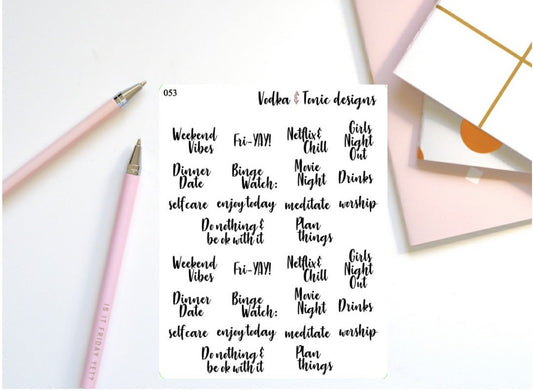 053
Vodka & Tonic designs
Weekend Vibes
Fri-YAY!
Netflix & Chill
Girls Night Out
Dinner Date
Binge Watch:
Movie Night
Drinks
selfcare
enjoy today
meditate
worship
Do nothing & be ok with it
Plan things
Weekend Vibes
Fri-YAY!
Netflix & Chill
Girls Night Out
Dinner Date
Binge Watch:
Movie Night
Drinks
selfcare
enjoy today
meditate
worship
Do nothing & be ok with it
Plan things
IS IT FRIDAY YET?